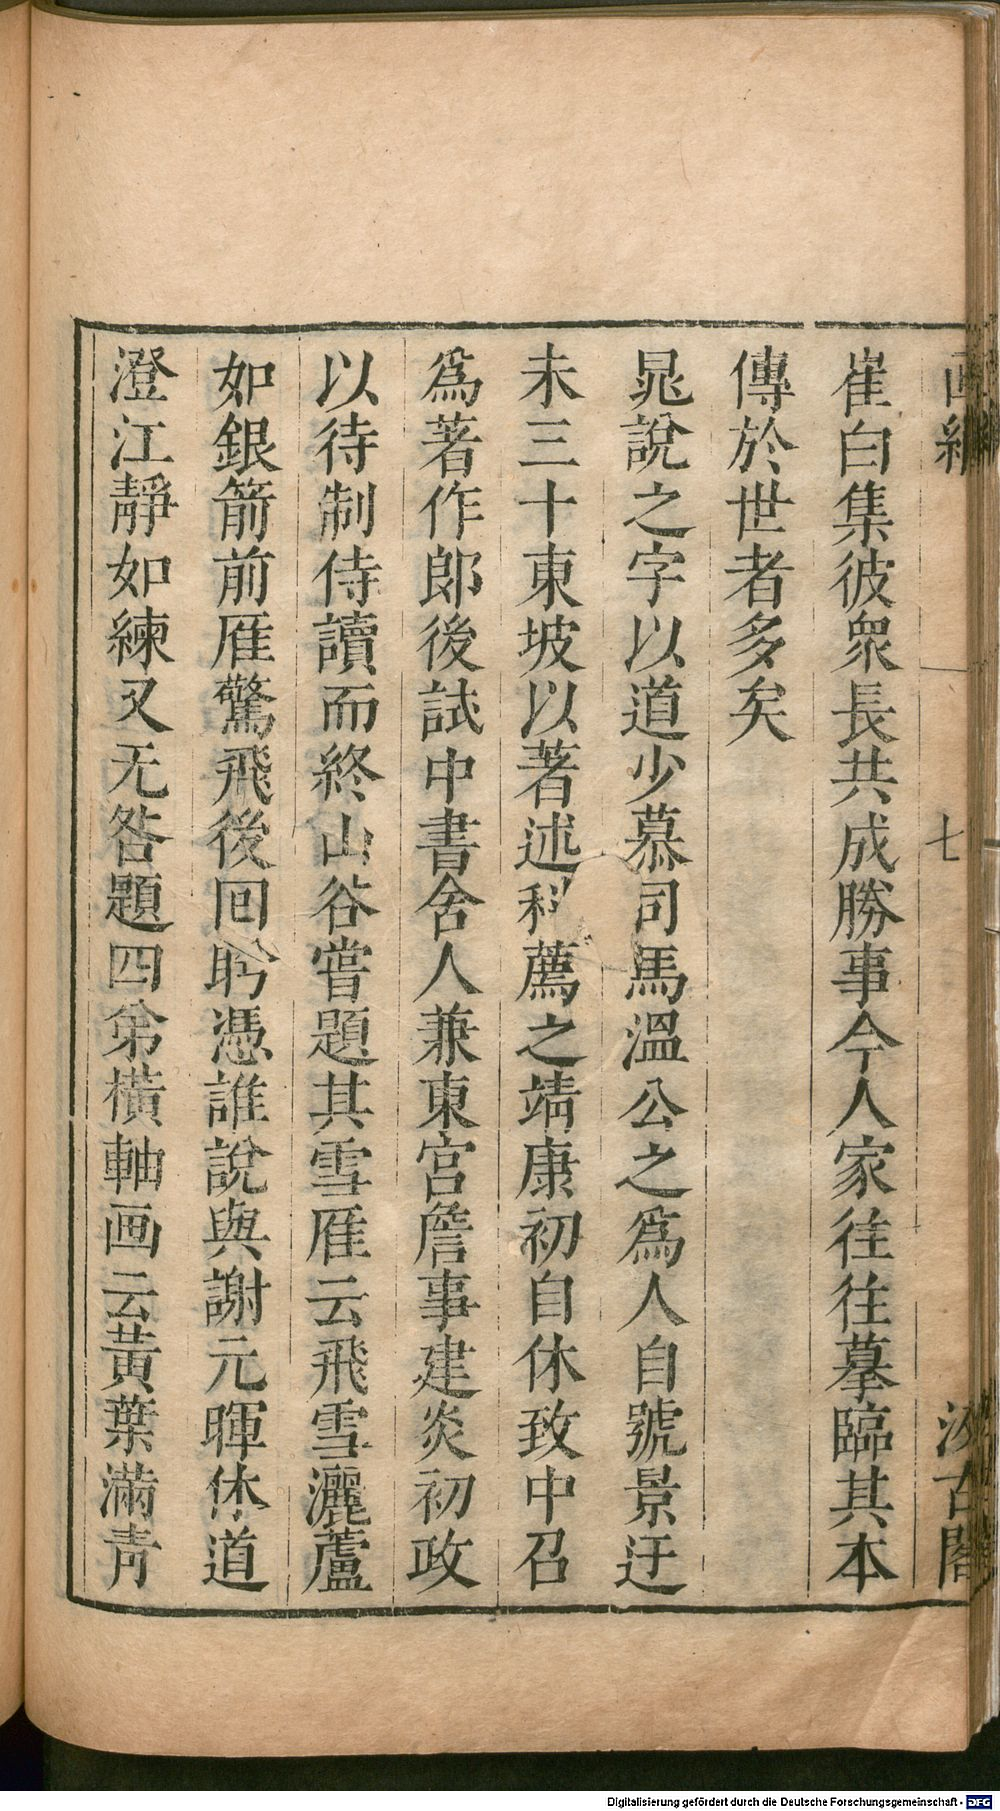 画繼
七
汲古閣
崔白集彼衆長共成勝事今人家往往摹臨其本
傳於世者多矣
晁說之字以道少慕司馬溫公之爲人自號景迂
未三十東坡以著述科薦之靖康初自休致中召
爲著作郎後試中書舍人兼東宮詹事建炎初政
以待制侍讀而終山谷嘗題其雪雁云飛雪灑蘆
如銀箭前雁驚飛後回眄憑誰說與謝元暉休道
澄江靜如練又无咎題四弟橫軸画云黃葉滿青
Digitalisierung gefördert durch die Deutsche Forschungsgemeinschaft - DFG